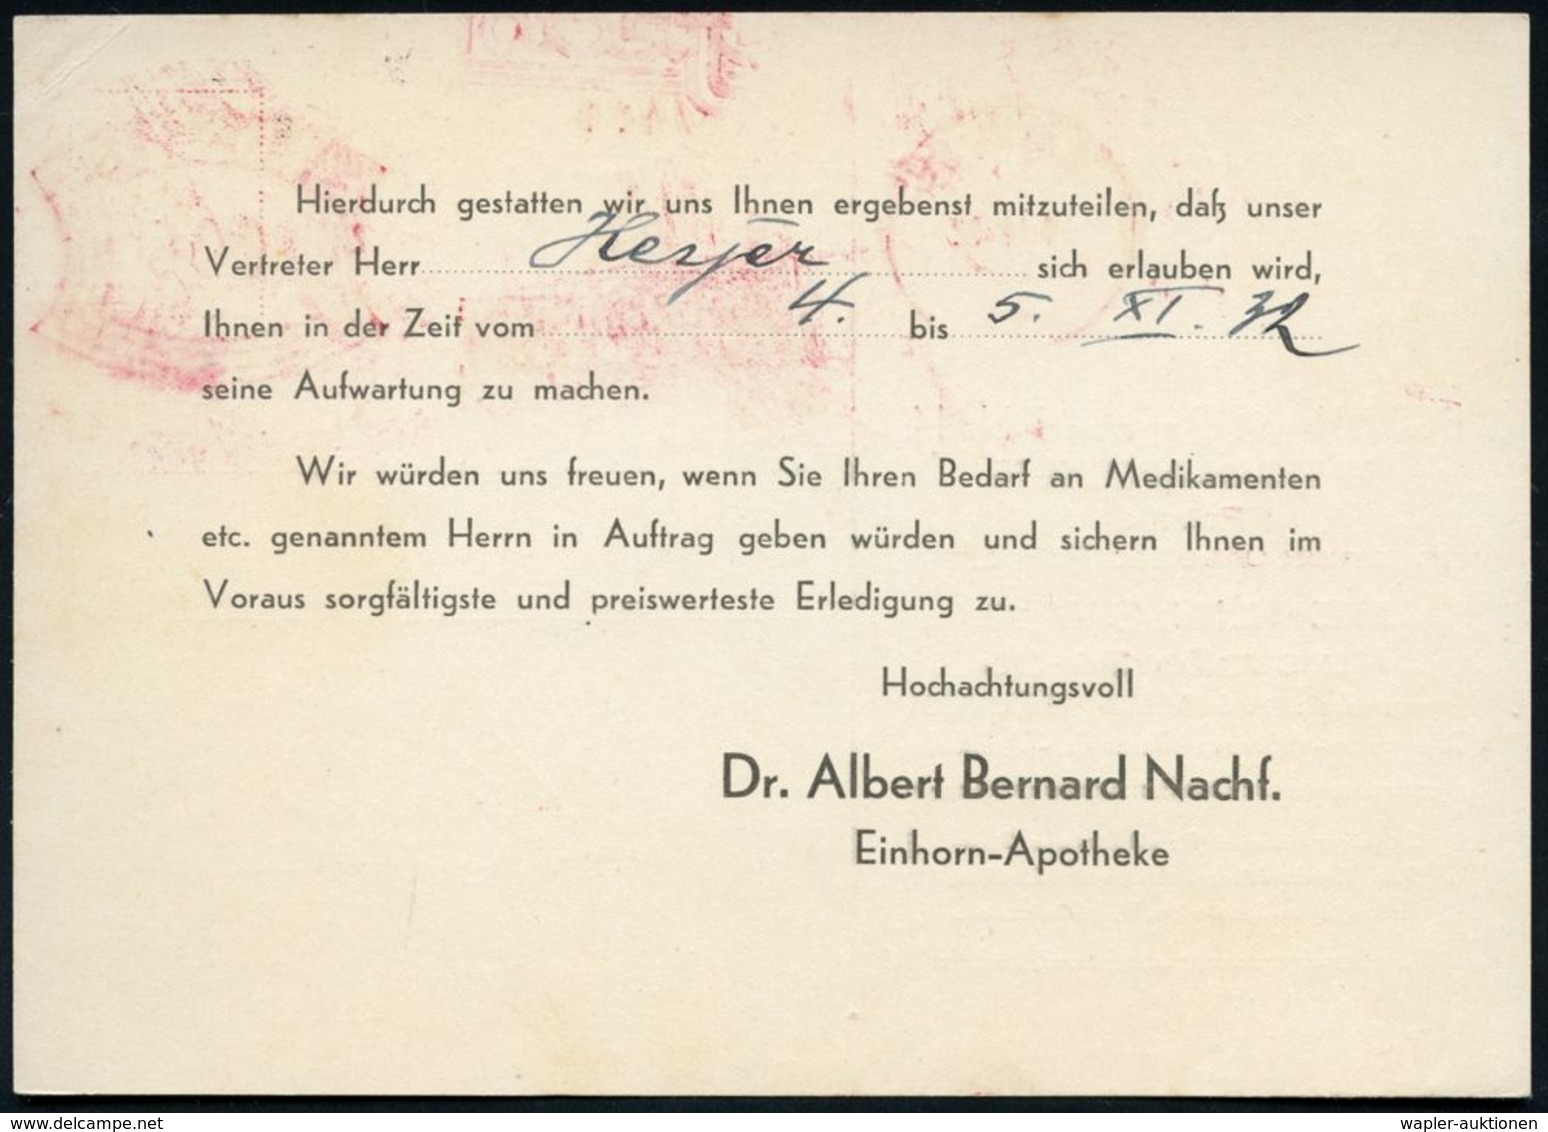 Hierdurch gestatten wir uns Ihnen ergebenst mitzuteilen, daß unser
Vertreter Herr Heyer sich erlauben wird,
Ihnen in der Zeit vom 4. bis 5. XI. 32
seine Aufwartung zu machen.
Wir würden uns freuen, wenn Sie Ihren Bedarf an Medikamenten
etc. genanntem Herrn in Auftrag geben würden und sichern Ihnen im
Voraus sorgfältigste und preiswerteste Erledigung zu.
Hochachtungsvoll
Dr. Albert Bernard Nachf.
Einhorn-Apotheke
delcampe.net
wapler-auktionen